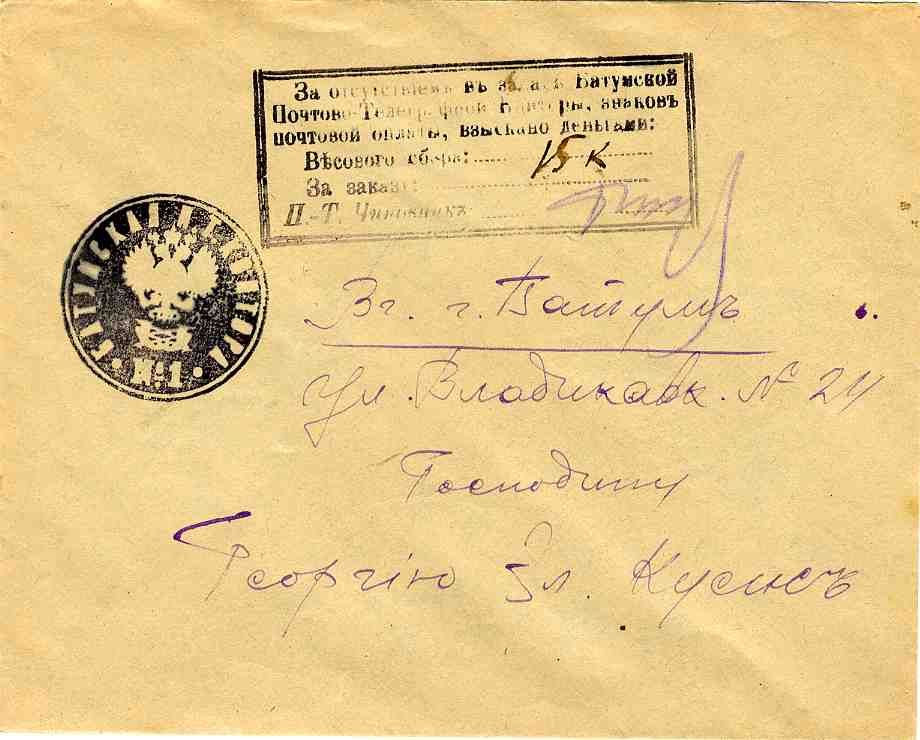 За отсутствіемъ въ запасѣ Батумской
Почтово-Телеграфной Конторы, знаковъ
почтовой оплаты, взыскано деньгами:
Вѣсового сбора: 15 к
За заказъ:
П.-Т. Чиновникъ
БАТУМСКАЯ
№ 1
Вг. г. Батумъ
Ул. Владикавк. № 24
Господину
Георгію Эл. Кусисъ